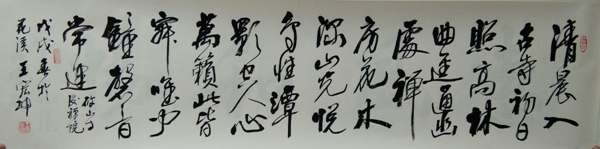 清晨入
古寺初日
照高林
曲逕通幽
處禪
房花木
深山光悦
鳥性潭
影空人心
萬籟此皆
寂唯聞
鐘磬音
常建
破山寺
後禪院
戊戌春於
花溪王宏坤